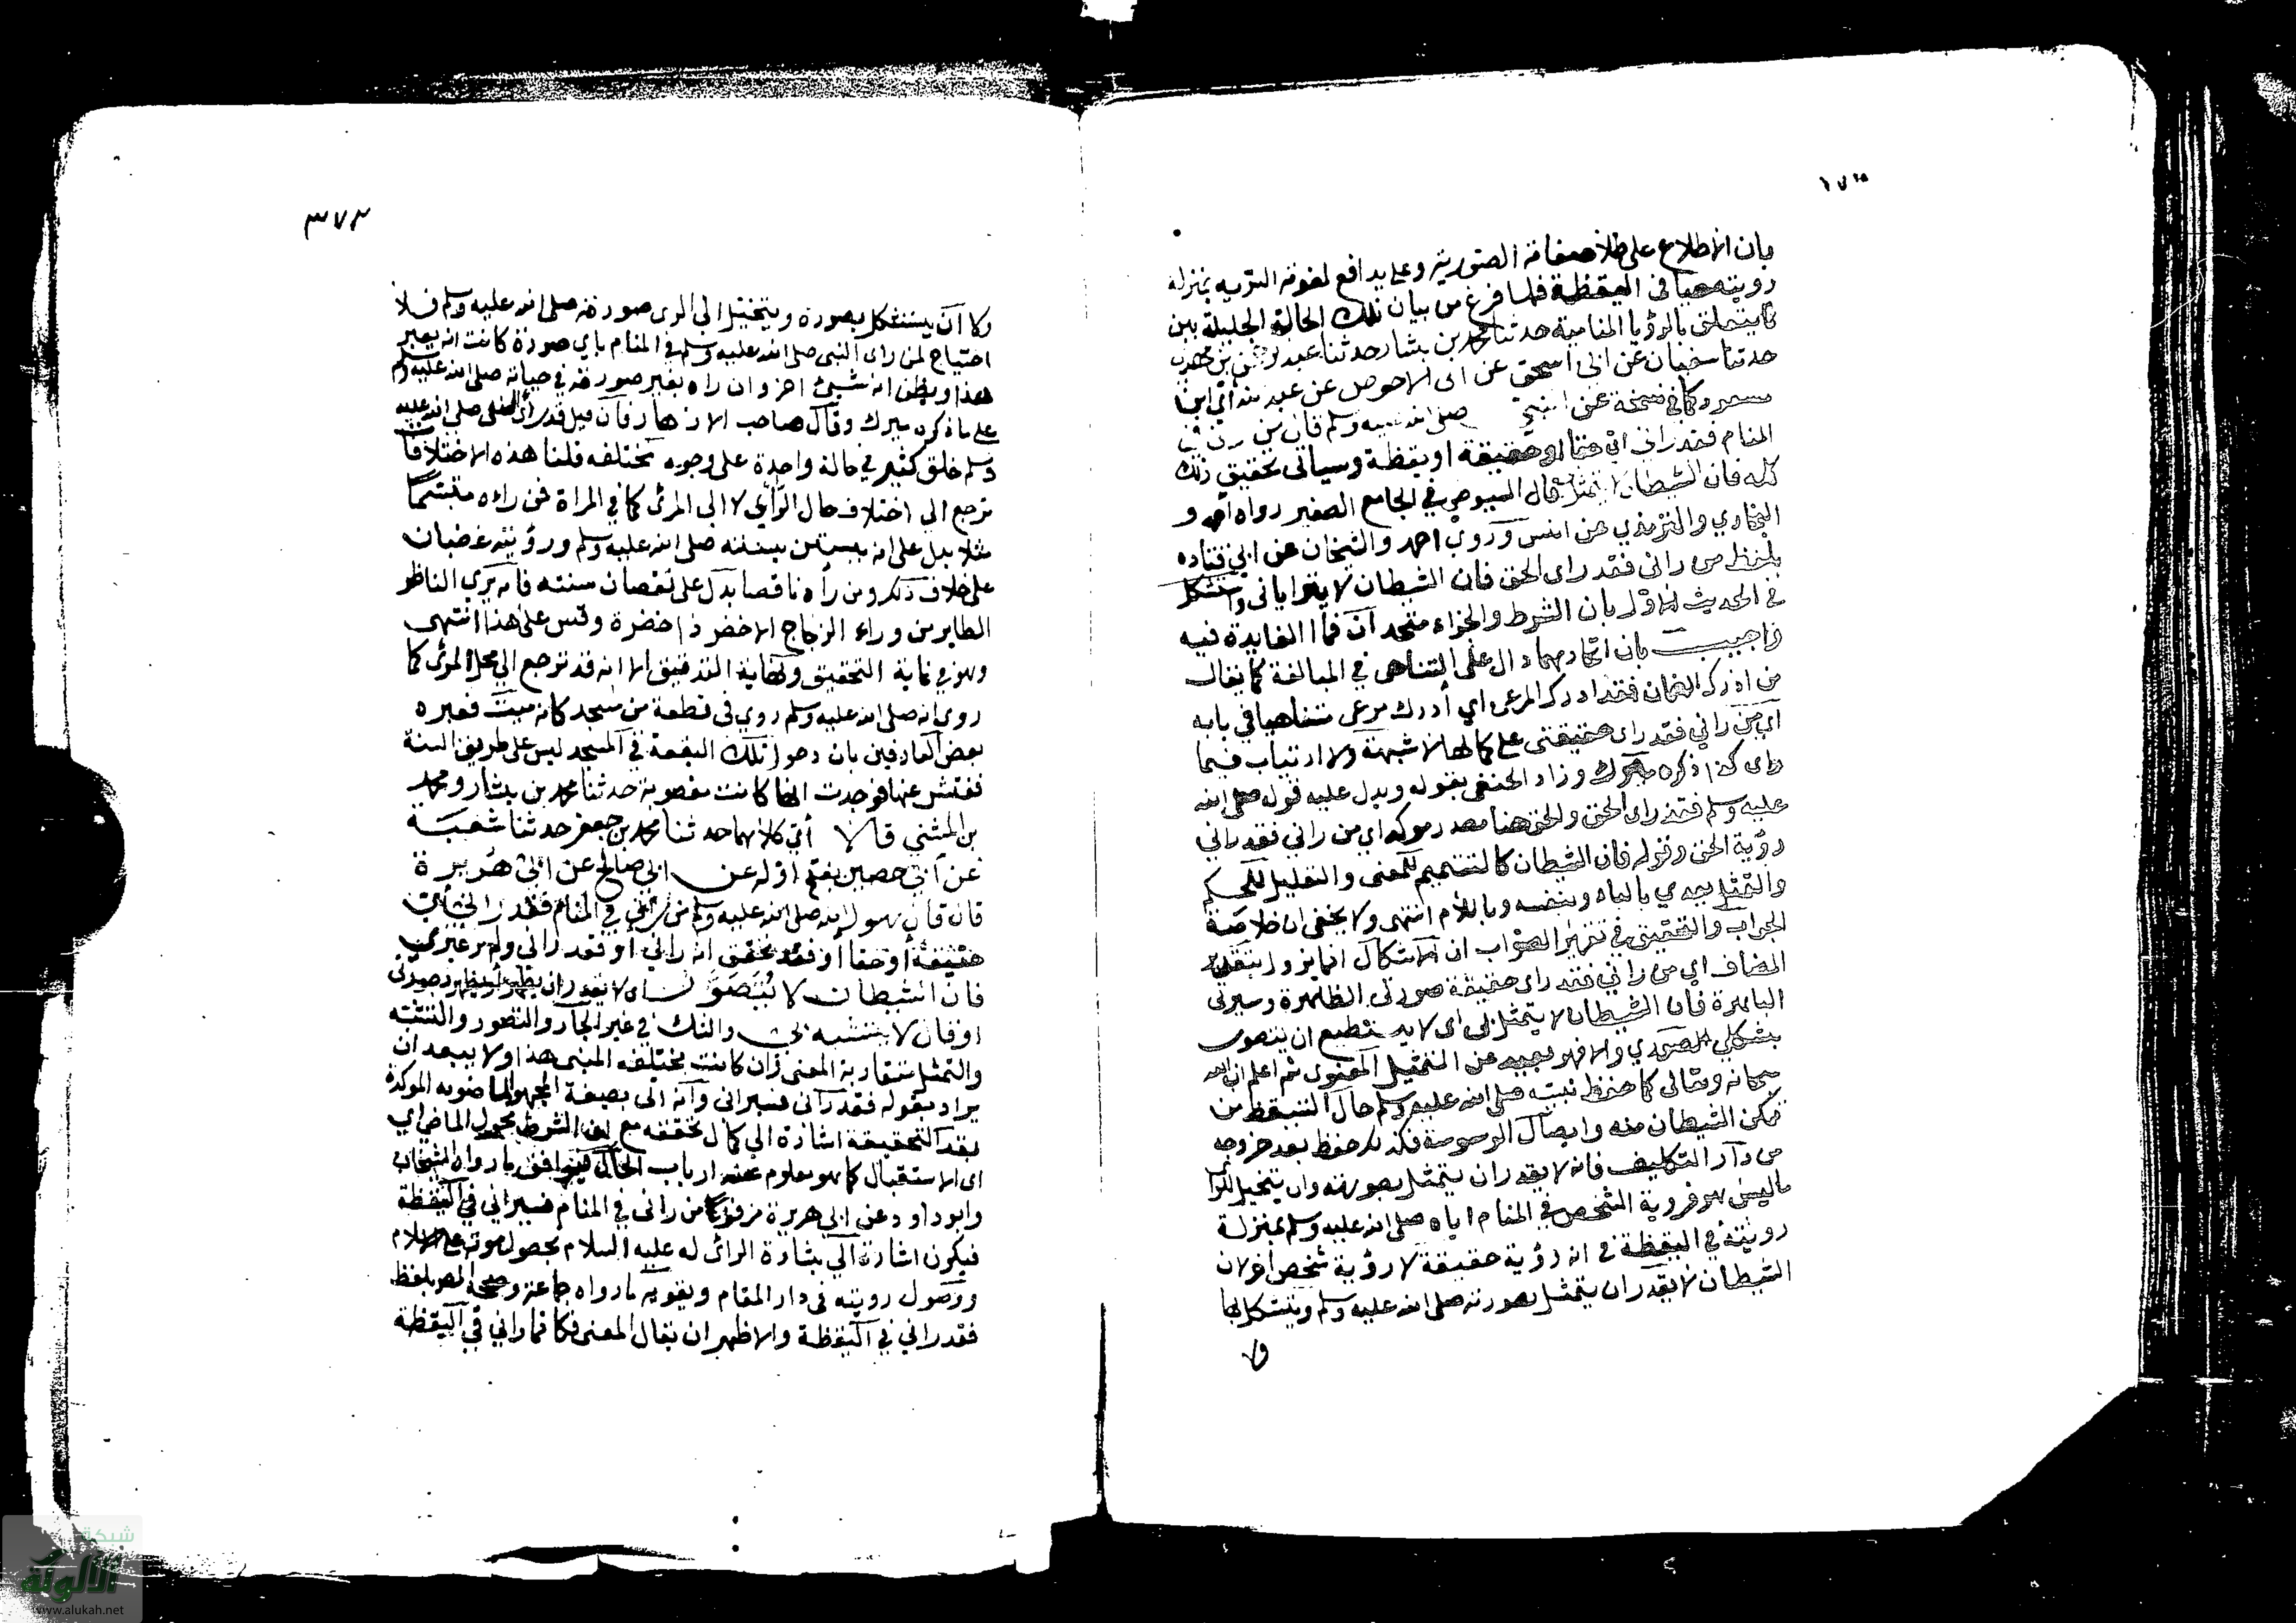 بان الاطلاع على طلائع صفاته الصورية وعلى بدائع نعوته السرية بمنزلة
رويته حيا في اليقظة فلما فرغ من بيان تلك الحالة الجليلة بين
ما يتعلق بالرؤيا المنامية حدثنا محمد بن بشار حدثنا عبد الرحمن بن مهدي
حدثنا سفيان عن ابي اسحق عن ابي الاحوص عن عبد الله اي ابن
مسعود كما في نسخة عن النبي صلى الله عليه وسلم قال من راني في
المنام فقد راني اي حقا او حقيقة او يقظة وسياتي تحقيق ذلك
كله فان الشيطان لا يتمثل بي قال السيوطي في الجامع الصغير رواه احمد و
البخاري والترمذي عن انس وروى احمد والشيخان عن ابي قتادة
بلفظ من راني فقد راى الحق فان الشيطان لا يتراياني واستشكل
في الحديث الاول بان الشرط والجزاء متحدان فما الفايدة فيه
واجيب بان اتحادهما دال على التناهي في المبالغة كما يقال
من ادرك الضمان فقد ادرك المرعى اي أدرك مرعى متناهيا في بابه
اي من راني فقد راى حقيقتي على كمالها لا شبهة ولا ارتياب فيما
راى كذا ذكره ميرك وزاد الحنفي بقوله ويدل عليه قوله صلى الله
عليه وسلم فقد راى الحق والحق هنا مصدر موكد اي من راني فقد راني
رؤية الحق وقوله فان الشيطان كالتتميم للمعنى والتعليل للحكم
والتمثل يعدي بالباء وبنفسه وباللام انتهى ولا يخفى ان خلاصة
الجواب والتحقيق في تقرير الصواب ان الاشكال انما يزول بتقدير
المضاف اي من راني فقد راى حقيقة صورتي الظاهرة وسيرتي
الباهرة فان الشيطان لا يتمثل بي اي لا يستطيع ان يتصور
بشكلي الصوري والا فهو بعيد عن التمثيل المعنوى ثم اعلم ان الله
سبحانه وتعالى كما حفظ نبيه صلى الله عليه وسلم حال التيقظ من
تمكن الشيطان منه وايصال الوسوسة فكذلك حفظ بعد خروجه
من دار التكليف فانه لا يقدر ان يتمثل بصورته وان يتخيل للرائي
ما ليس هو فروية الشخص في المنام اياه صلى الله عليه وسلم بمنزلة
رويته في اليقظة في انه رؤية حقيقة لا رؤية شخص اخر لان
الشيطان لا يقدر ان يتمثل بصورته صلى الله عليه وسلم ويتشكل بها
ولا
٣٧٢
ولا ان يتشكل بصورة ويتخيل الى الرى صورته صلى الله عليه وسلم فلا
احتياج لمن راى النبي صلى الله عليه وسلم في المنام باي صورة كانت ان يعبر
هذا ويظن انه شيئ اخر وان راه بغير صورته في حياته صلى الله عليه وسلم
على ما ذكره ميرك وقال صاحب الازهار فان قيل قد رأى النبي صلى الله عليه
وسلم خلق كثير في حالة واحدة على وجوه مختلفه قلنا هذه الاختلافات
ترجع الى اختلاف حال الرأي لا الى المرئ كما في المراة فمن راءه متبسما
مثلا يدل على انه يستن بسنته صلى الله عليه وسلم ورؤيته غضبان
على خلاف ذلك ومن رأه ناقصا يدل على نقصان سنته فانه يرى الناظر
الطاير من وراء الزجاج الاخضر ذا خضرة وقس على هذا انتهى
وهو في غاية التحقيق ونهاية التدقيق الا انه قد ترجع الى محل المرئ كما
روي انه صلى الله عليه وسلم روي في قطعة من مسجد كانه ميت فعبره
بعض العارفين بان دخول تلك البقعة في المسجد ليس على طريق السنة
ففتش عنها فوجدت انها كانت مغصوبة حدثنا محمد بن بشار ومحمد
بن المثني قالا أي كلاهما حدثنا محمد بن جعفر حدثنا شعبة
عن ابي حصين بفتح اوله عن ابي صالح عن ابي هريرة
قال قال رسول الله صلى الله عليه وسلم من راني في المنام فقد راني اي
حقيقة أو حقا أو فقد تحقق انه راني أو فقد راني ولم ير غيري
فان الشيطان لا يتصور اي لا يقدر ان يظهر أو يظهر بصورتي
او قال لا يتشبه بي والشك في غير الجار والتصور والتشبه
والتمثل متقاربة المعنى وان كانت مختلفه المبنى هذا ولا يبعد ان
يراد بقوله فقد راني فسيراني وانه اتى بصيغة المجهول الماضويه الموكدة
بقد التحقيقة اشارة الى كمال تحققه مع ان الشرط يحول الماضي الي
اي الاستقبال كما هو معلوم عند ارباب الحال فيوافق ما رواه الشيخان
وابو داود عن ابي هريرة مرفوعا من راني في المنام فسيراني في اليقظة
فيكون اشارة الي بشارة الرائي له عليه السلام بحصول موته على الاسلام
ووصول رويته في دار المقام ويقويه ما رواه جماعة وصححه المص بلفظ
فقد راني في اليقظة والاظهر ان يقال المعنى فكانما راني في اليقظة